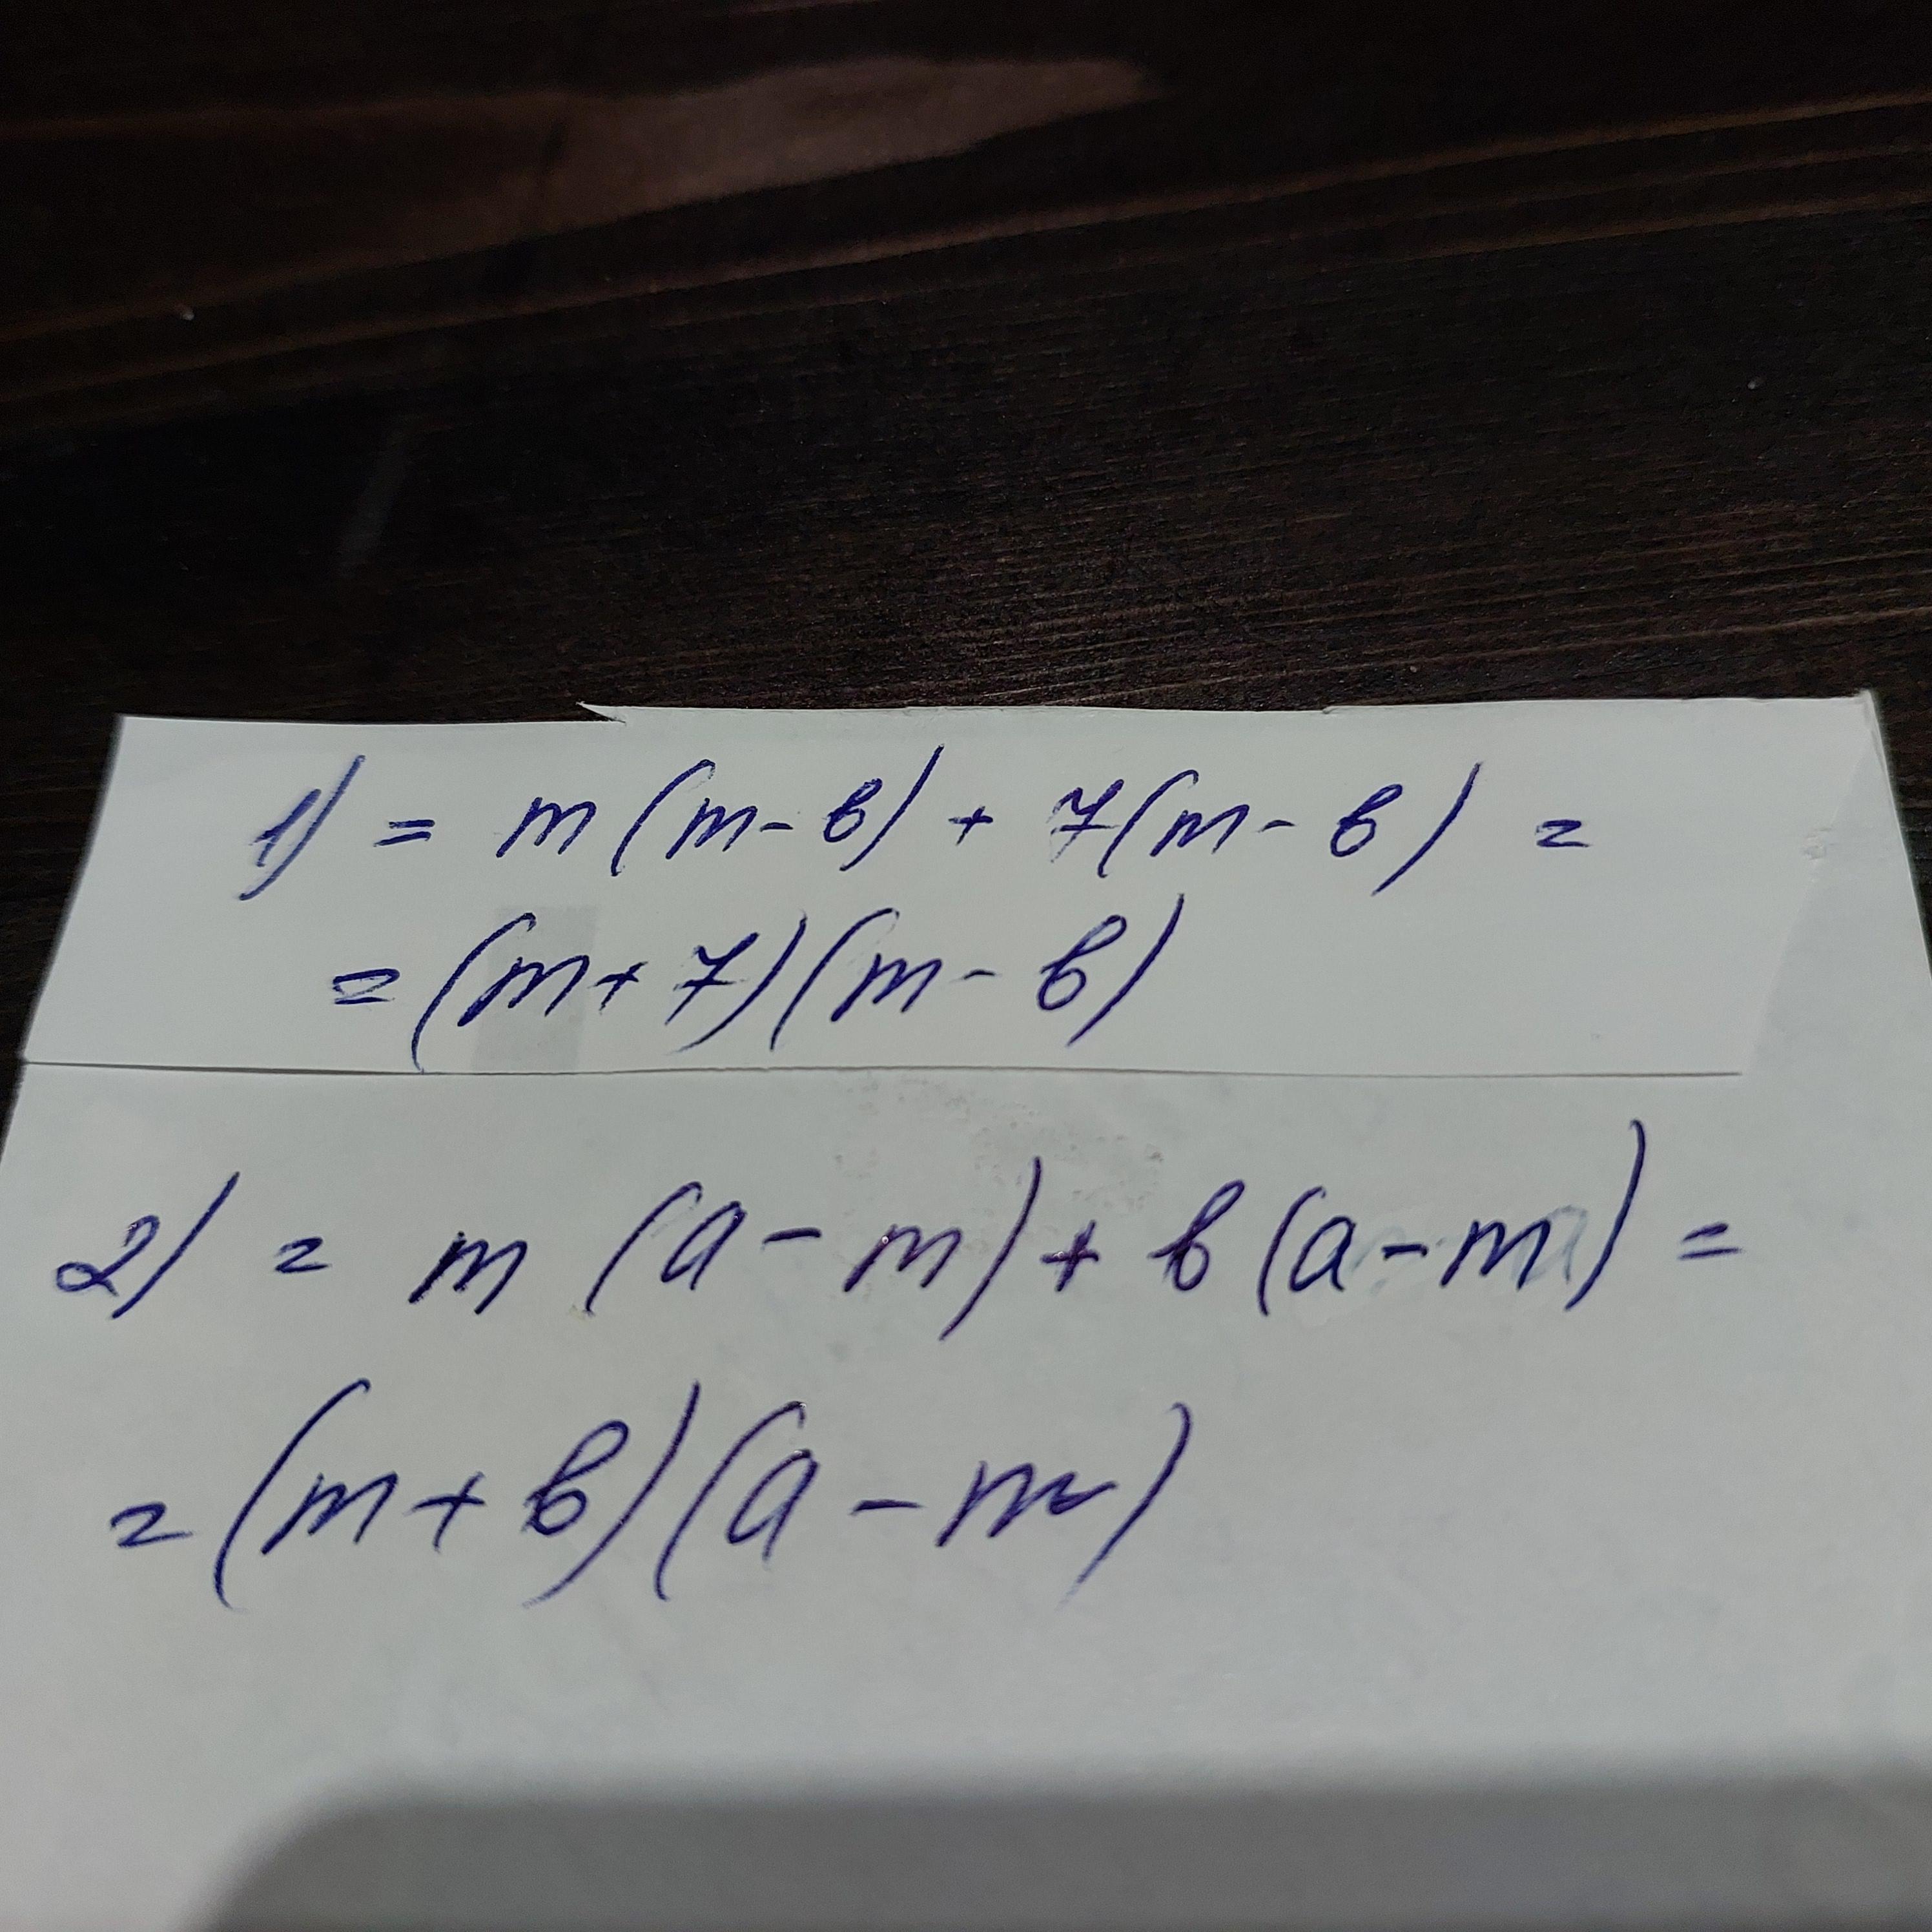 1) = m(m-b) + 7(m-b) =
= (m+7)(m-b)
2) = m(a-m)+b(a-m) =
= (m+b)(a-m)